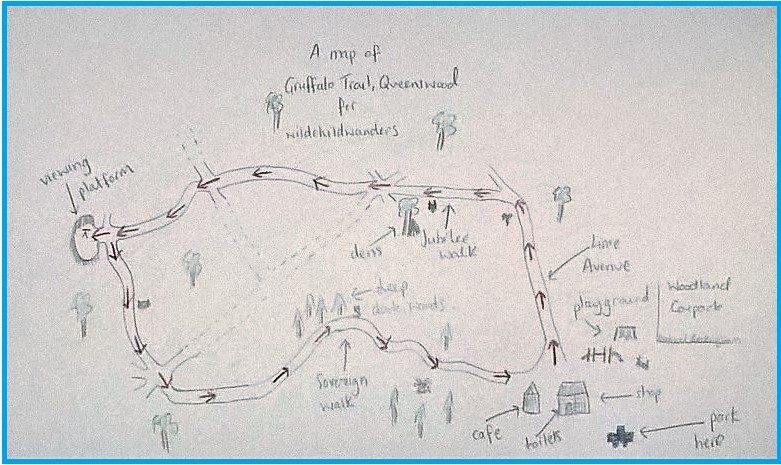 A map of
Gruffalo Trail, Queenswood
for
wildchildwanders
viewing
platform
dens
Jubilee
walk
Lime
Avenue
deep
dark woods
playground
Woodland
Carpark
Sovereign
walk
shop
cafe
toilets
park
here